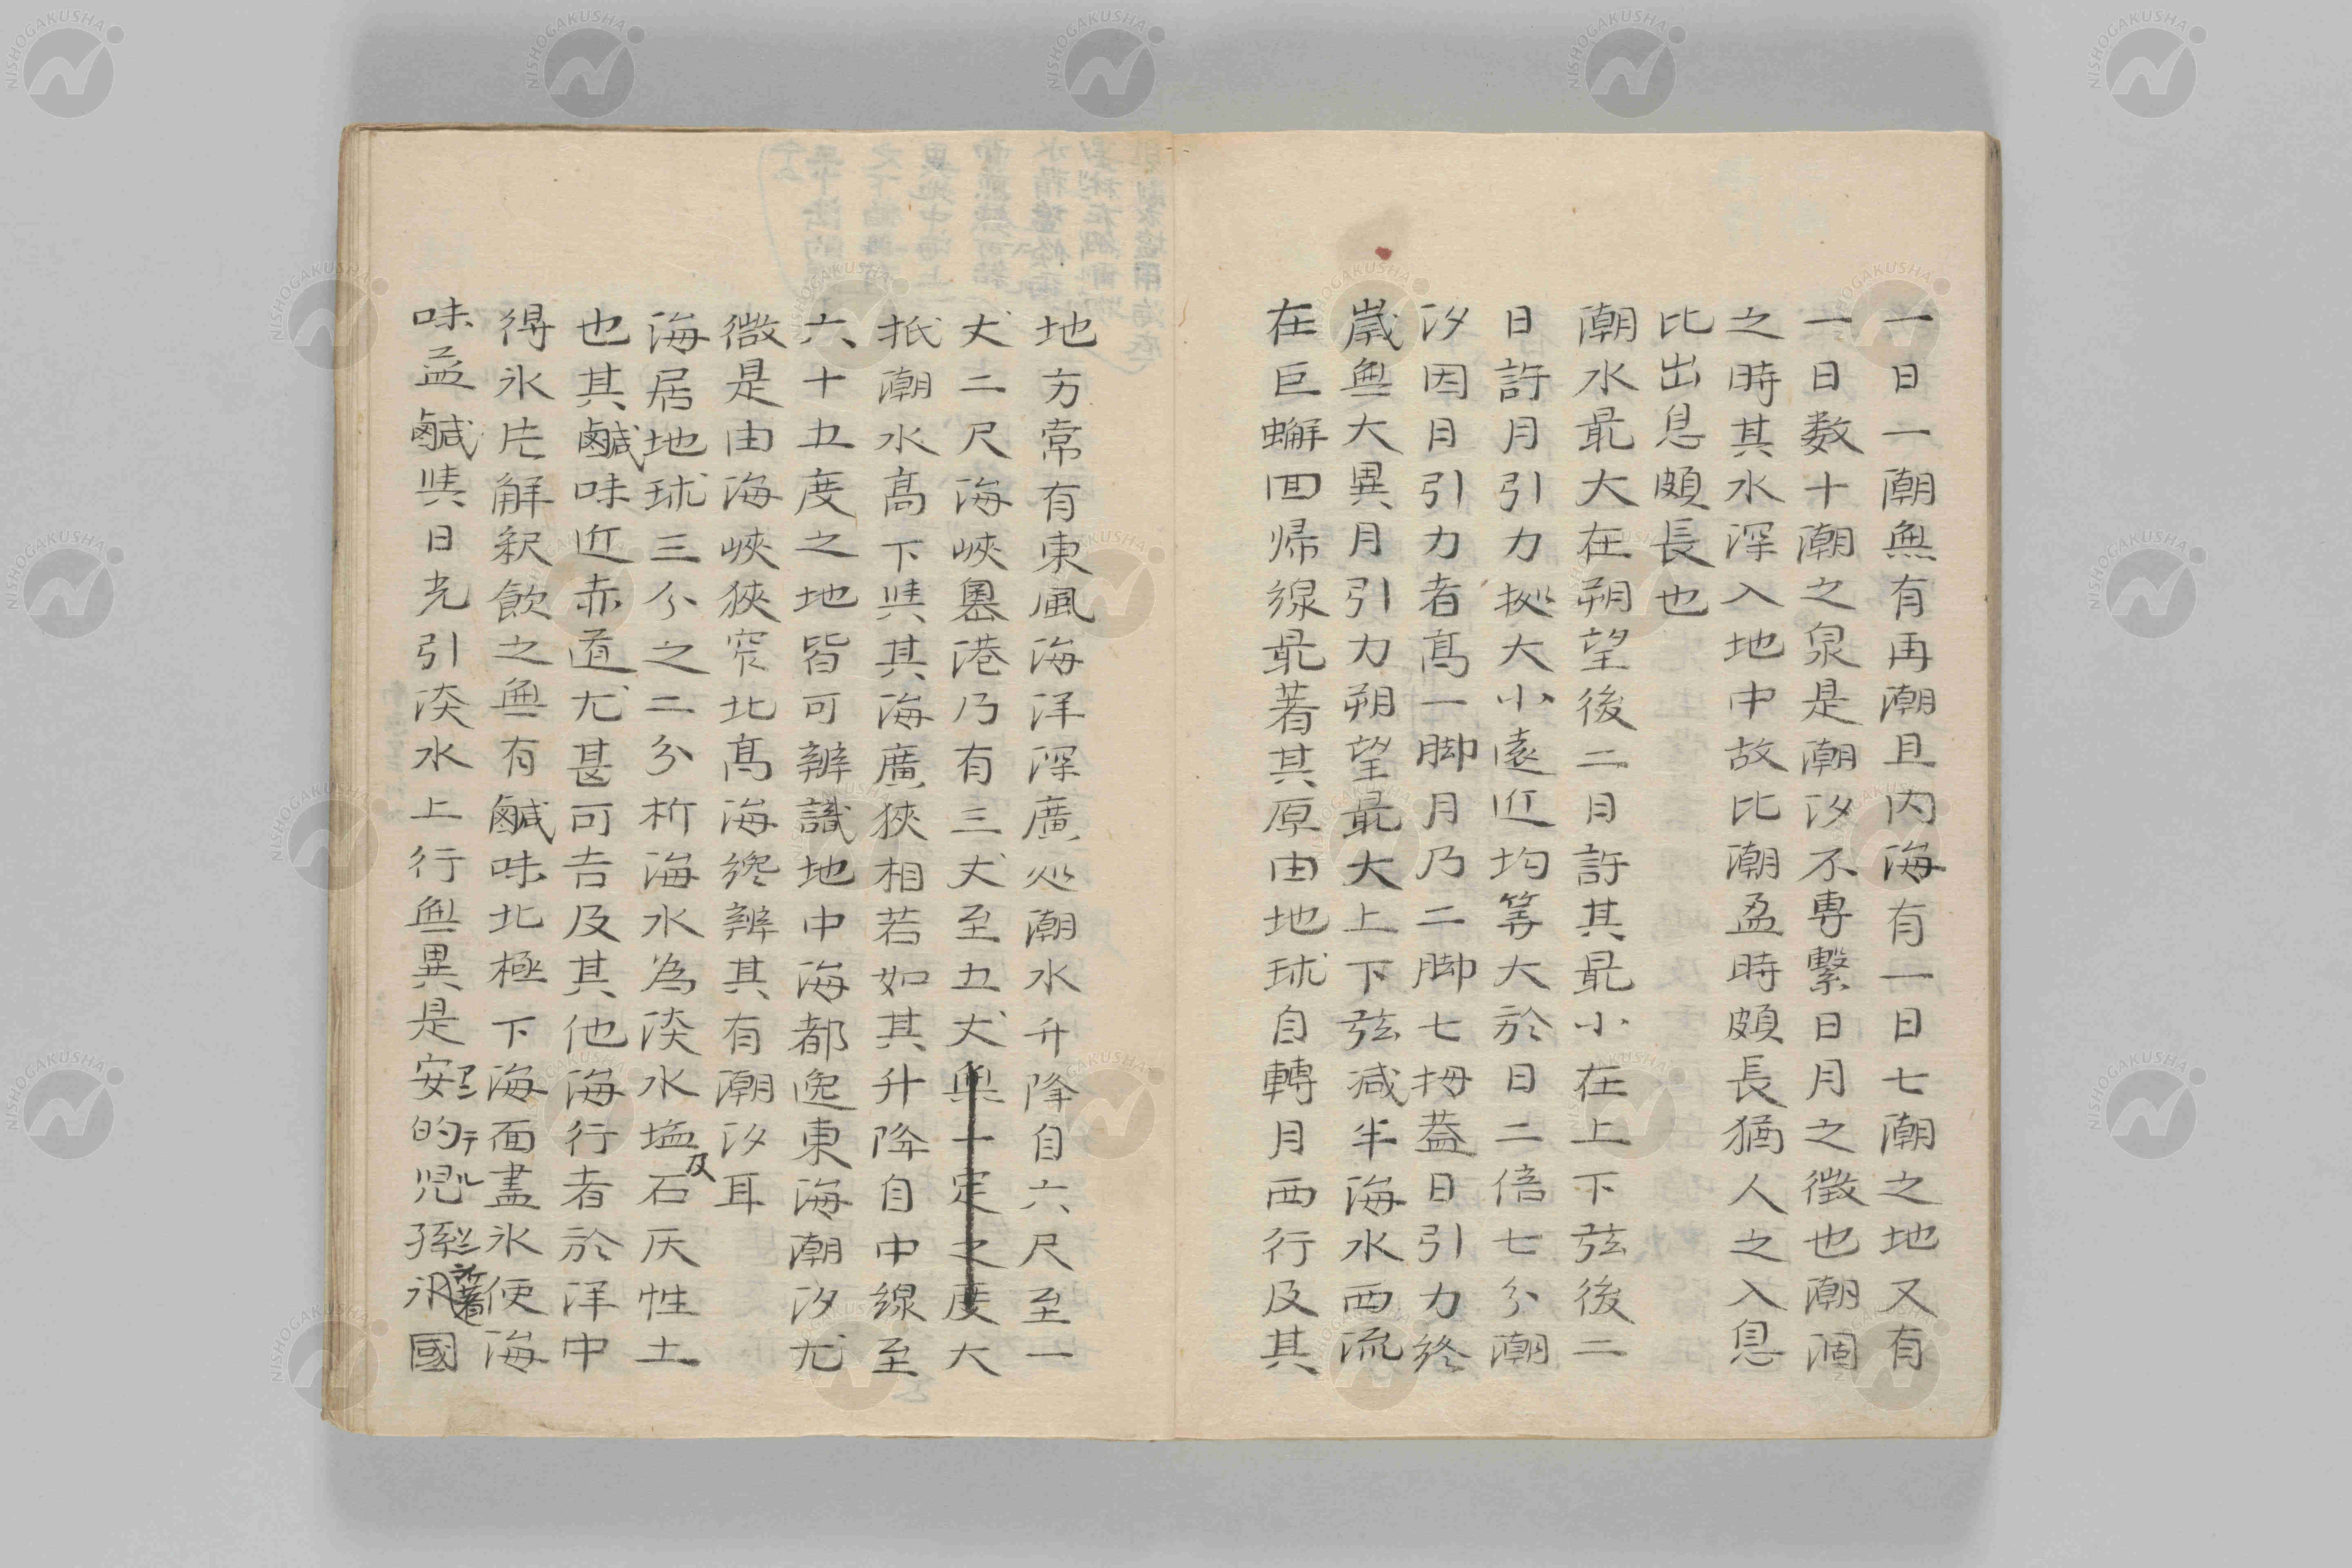 一日一潮無有再潮且内海有一日七潮之地又有
一日数十潮之泉是潮汐不専繋日月之徴也潮涸
之時其水深入地中故比潮盈時頗長猶人之入息
比出息頗長也
潮水最大在朔望後二日許其最小在上下弦後二
日許月引力拠大小遠近均等大於日二倍七分潮
汐因月引力者高一脚月乃二脚七拇蓋日引力終
歳無大異月引力朔望最大上下弦減半海水西流
在巨蠏回帰線最著其原由地球自轉月西行及其
地方常有東風海洋深廣処潮水升降自六尺至一
丈二尺海峽嶴港乃有三丈至五丈無一定之度大
抵潮水高下與其海廣狹相若如其升降自中線至
六十五度之地皆可辨識地中海都逸東海潮汐尤
微是由海峽狹窄北高海終辨其有潮汐耳
海居地球三分之二分析海水為淡水塩及石灰性土
也其鹹味近赤道尤甚可吉及其他海行者於洋中
得氷片解釈飲之無有鹹味北極下海面盡氷便海
味益鹹與日光引淡水上行無異是安的児孫所著氷國
アンテルソン
NISHOGAKUSHA